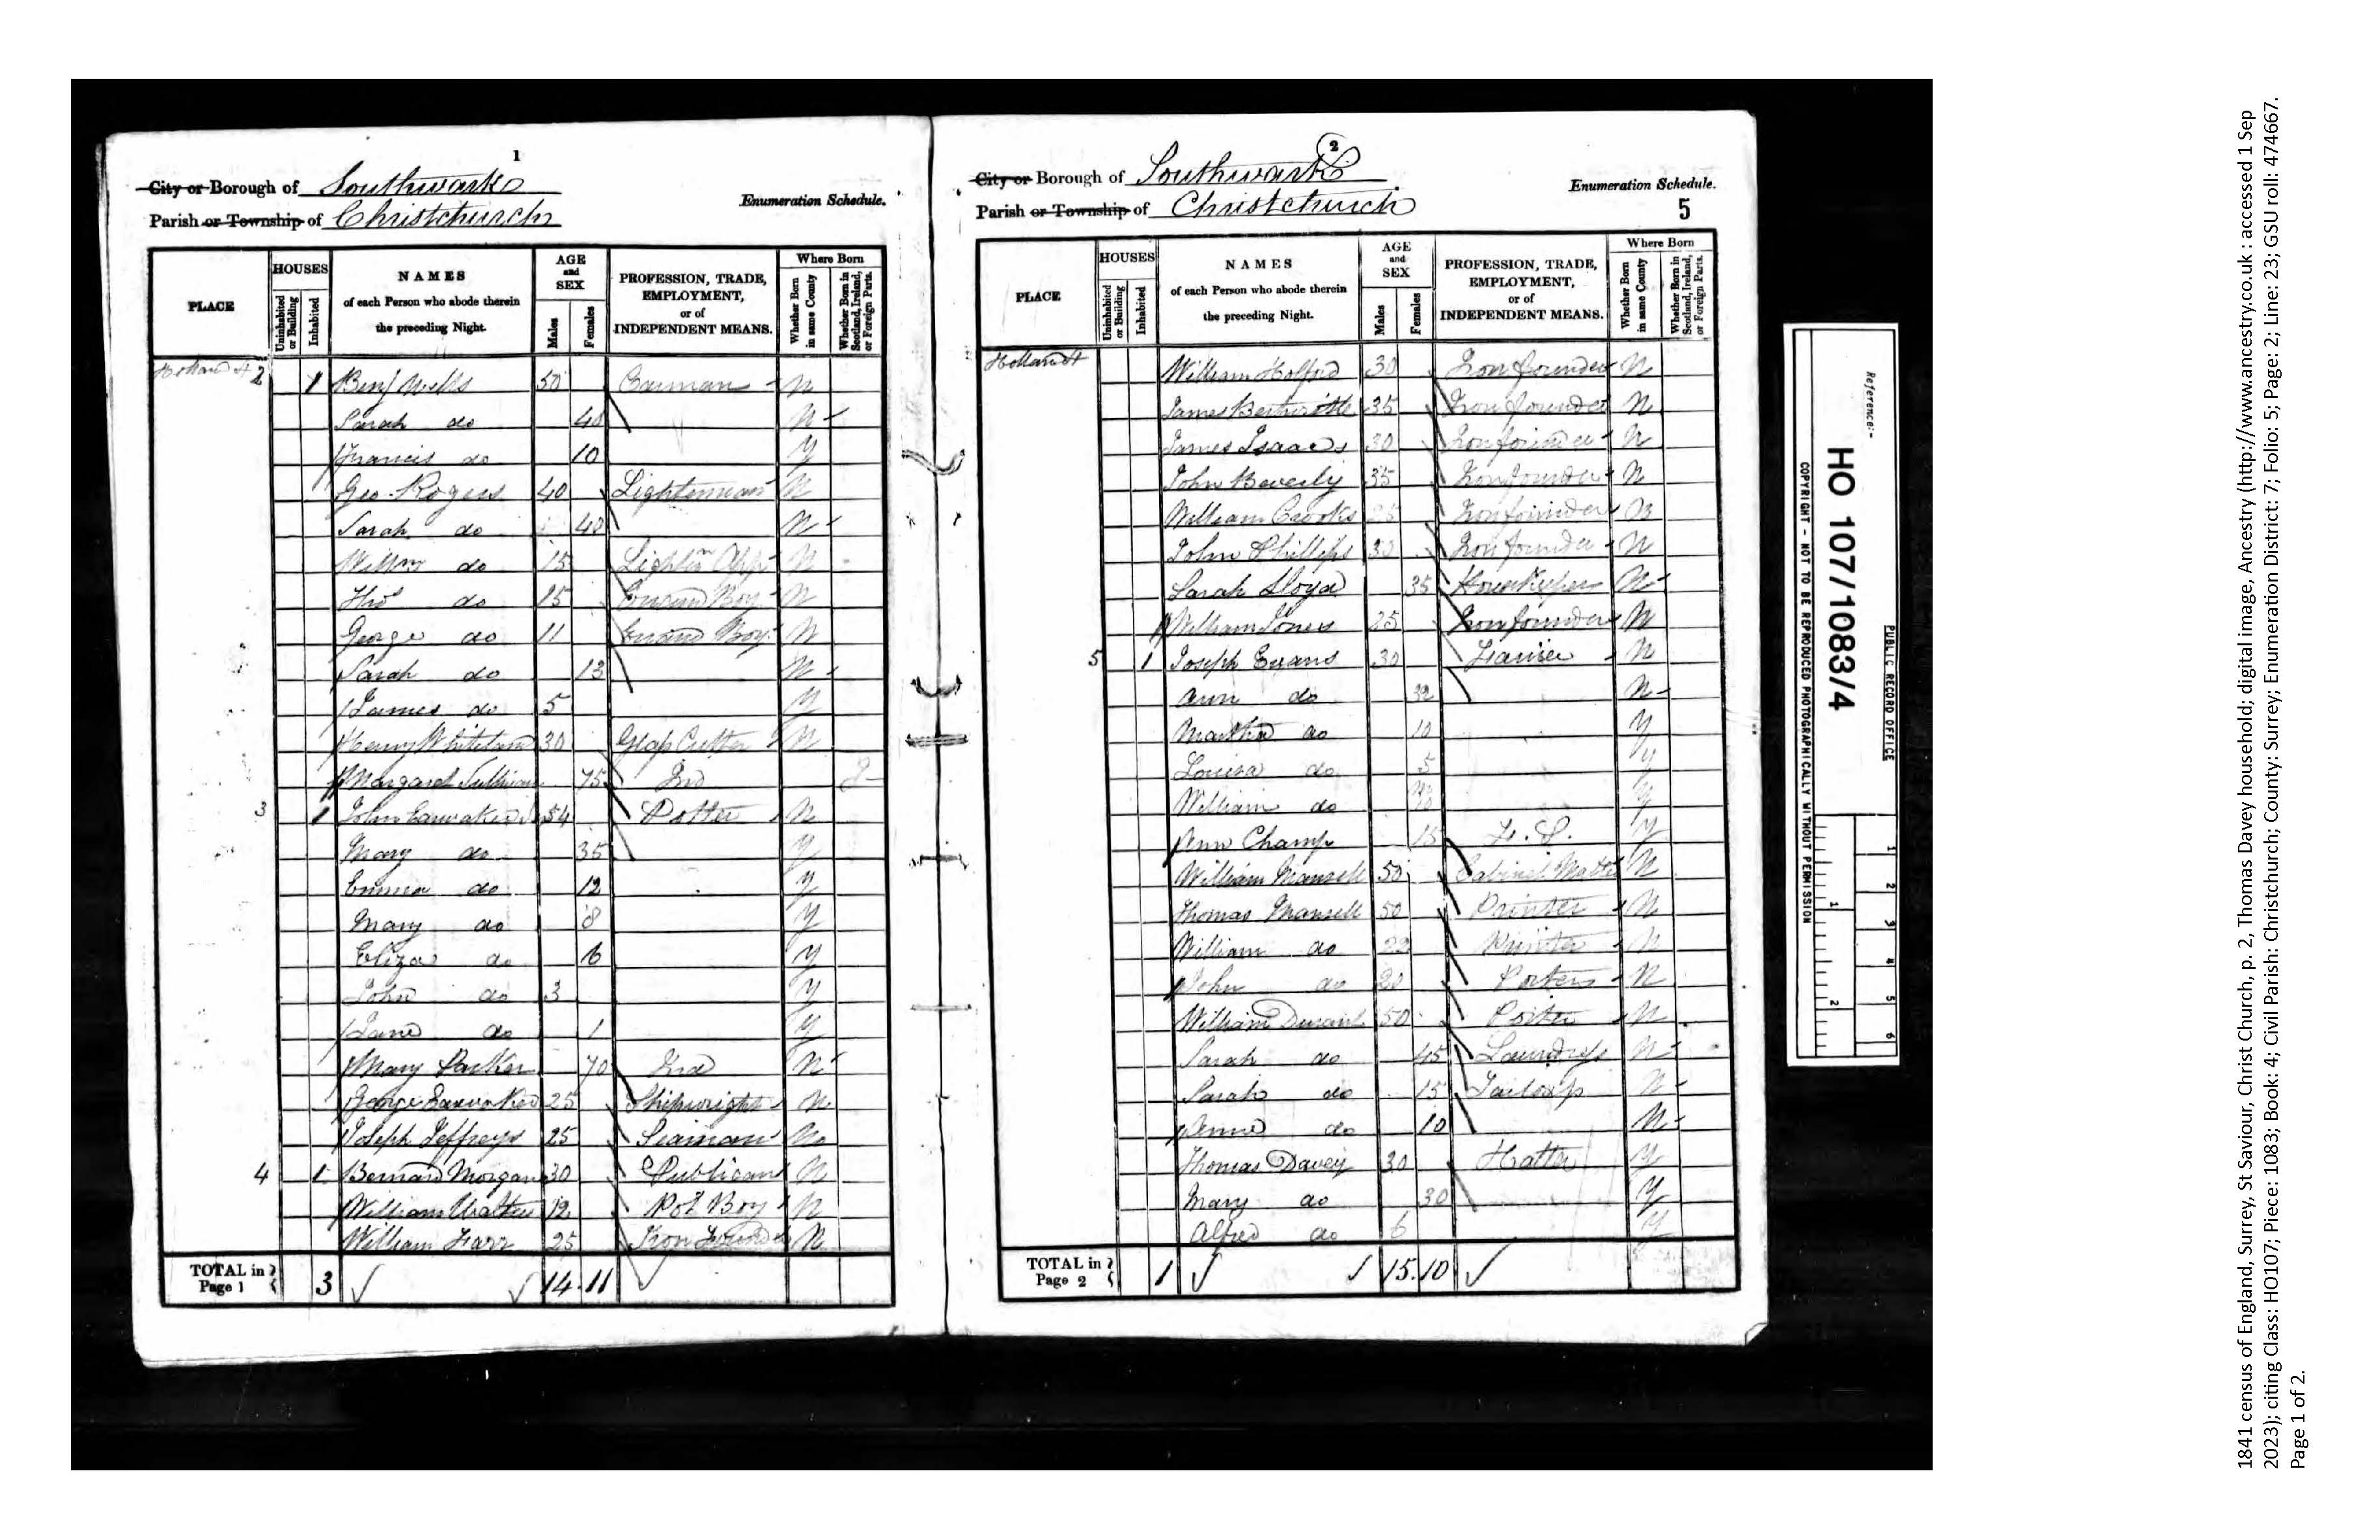 1
City or Borough of Southwark
Parish or Township of Christchurch
Enumeration Schedule.
PLACE
HOUSES
Uninhabited or Building
Inhabited
NAMES
of each Person who abode therein
the preceding Night.
AGE
and
SEX
Males
Females
PROFESSION, TRADE,
EMPLOYMENT,
or of
INDEPENDENT MEANS.
Where Born
Whether Born in same County
Whether Born in Scotland, Ireland, or Foreign Parts.
Holland St 2 1 Benj Wells 50 Carman N
Sarah do 40 N
Francis do 10 Y
Geo Rogers 40 Lighterman N
Sarah do 40 N
Willm do 15 N
Thos do 15 Errand Boy N
George do 11 Errand Boy N
Sarah do 13 N
James do 5 Y
Henry 30 Glass Cutter N
Margaret 75 Ind I
3 1 John Earwaker 54 Potter N
Mary do 35 Y
Emma do 12 Y
Mary do 8 Y
Eliza do 6 Y
John do 3 Y
Jane do 1 Y
Mary Parker 70 Ind N
George Earwaker 25 Shipwright N
Joseph Jeffreys 25 Seaman No
4 1 Bernard Morgan 30 Publican N
William 19 Pot Boy N
William Farr 25 Iron Founder N
TOTAL in Page 1 3 14 11
2
City or Borough of Southwark
Parish or Township of Christchurch
Enumeration Schedule.
5
PLACE
HOUSES
Uninhabited or Building
Inhabited
NAMES
of each Person who abode therein
the preceding Night.
AGE
and
SEX
Males
Females
PROFESSION, TRADE,
EMPLOYMENT,
or of
INDEPENDENT MEANS.
Where Born
Whether Born in same County
Whether Born in Scotland, Ireland, or Foreign Parts.
Holland St William Holford 30 Iron founder N
James 35 Iron founder N
James Isaacs 30 Iron founder N
John Beverly 35 Iron founder N
William Crooks 25 Iron founder N
John Phillips 30 Iron founder N
Sarah Lloyd 35 N
William Jones 25 Iron founder N
5 1 Joseph Evans 30 N
Ann do N
Martha do 10 Y
Louisa do 5 Y
William do Y
Ann Champ 15 F. S. Y
William Mansell 50 Cabinet Maker N
Thomas Mansell 50 Printer N
William do Printer N
John do 20 Porter N
William Durant 50 Porter N
Sarah do 45 Laundress N
Sarah do 15 N
Anne do 10 N
Thomas Davey 30 Hatter Y
Mary do 30 Y
Alfred do 6 Y
TOTAL in Page 2 1 15 10
Reference:-
HO 107/1083/4
PUBLIC RECORD OFFICE
COPYRIGHT - NOT TO BE REPRODUCED PHOTOGRAPHICALLY WITHOUT PERMISSION
1 2 3 4 5 6
1 2
1841 census of England, Surrey, St Saviour, Christ Church, p. 2, Thomas Davey household; digital image, Ancestry (http://www.ancestry.co.uk : accessed 1 Sep
2023); citing Class: HO107; Piece: 1083; Book: 4; Civil Parish: Christchurch; County: Surrey; Enumeration District: 7; Folio: 5; Page: 2; Line: 23; GSU roll: 474667.
Page 1 of 2.